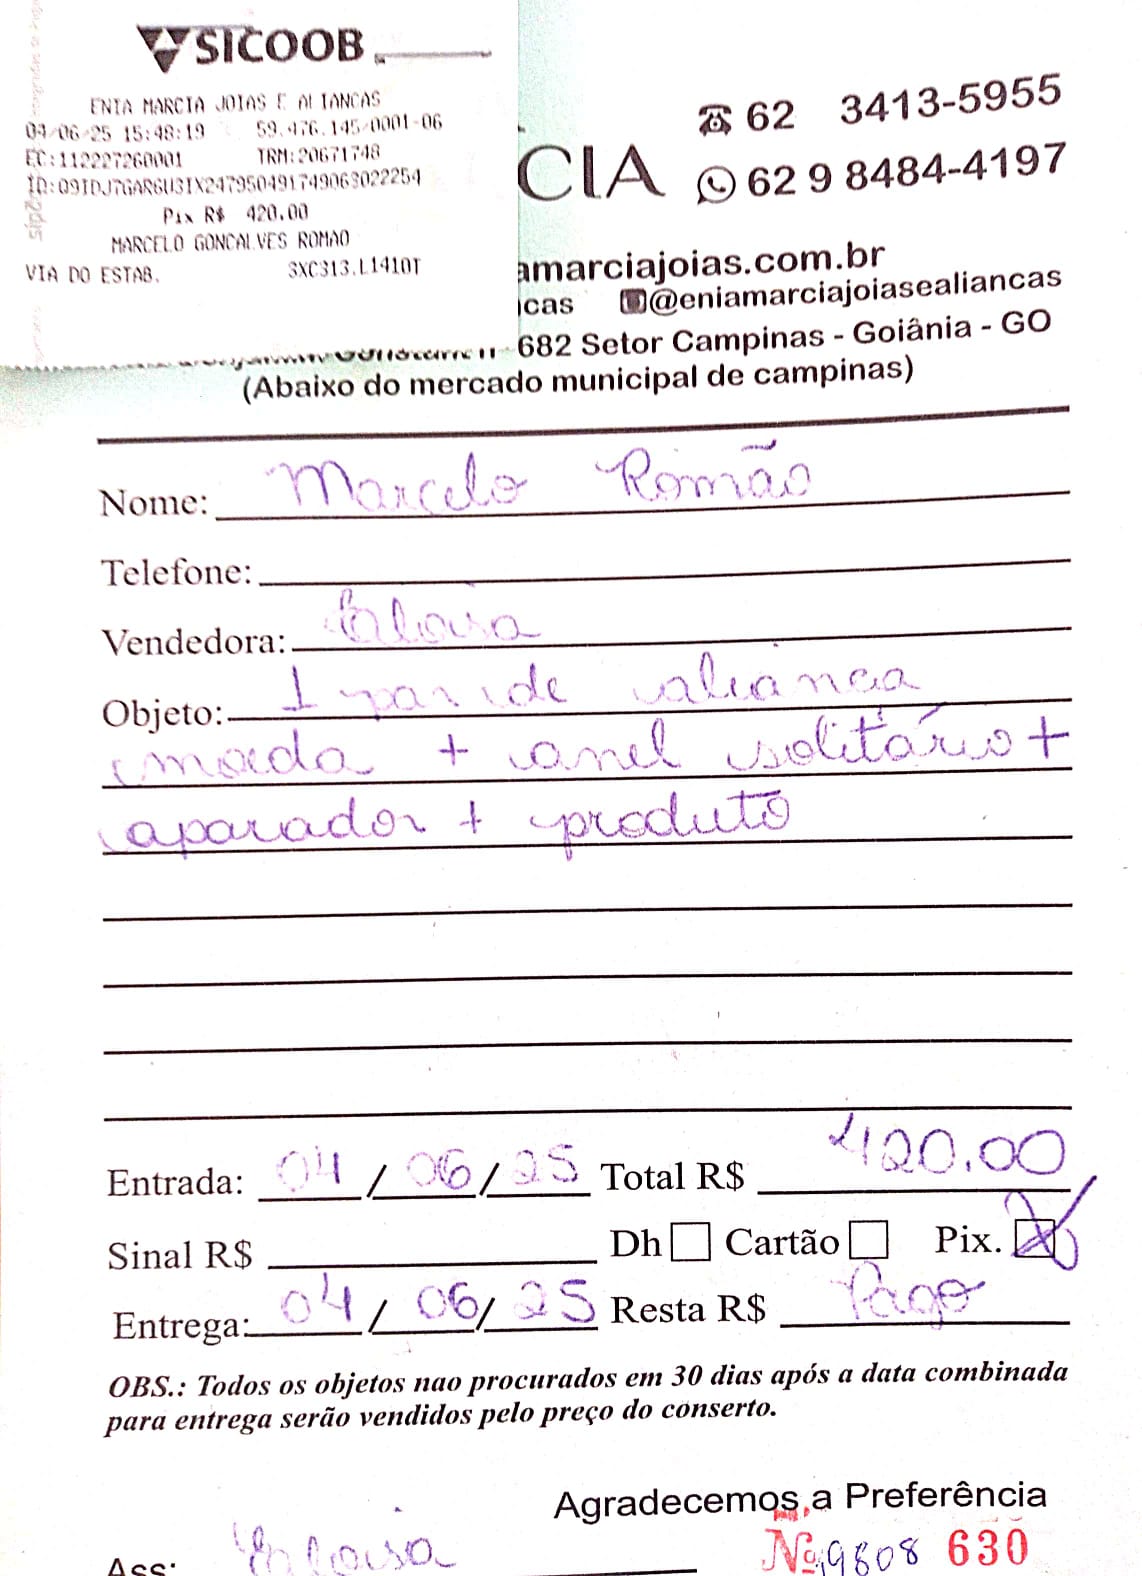 SICOOB
ENIA MARCIA JOIAS E ALIANCAS
04/06/25 15:48:19 59.476.145/0001-06
EC:112227260001 TRM:20671748
Pix R$ 420.00
MARCELO GONCALVES ROMAO
VIA DO ESTAB. SXC313.L1410T
62 3413-5955
CIA 62 9 8484-4197
amarciajoias.com.br
cas @eniamarciajoiasealiancas
682 Setor Campinas - Goiânia - GO
(Abaixo do mercado municipal de campinas)
Nome: Marcelo Romão
Telefone:
Vendedora: Eloisa
Objeto: 1 par de aliança
moeda + anel solitário +
aparador + produto
Entrada: 04/06/25 Total R$ 420,00
Sinal R$ Dh Cartão Pix. X
Entrega: 04/06/25 Resta R$ Pago
OBS.: Todos os objetos nao procurados em 30 dias após a data combinada
para entrega serão vendidos pelo preço do conserto.
Agradecemos a Preferência
Ass: Eloisa Nº 9808 630